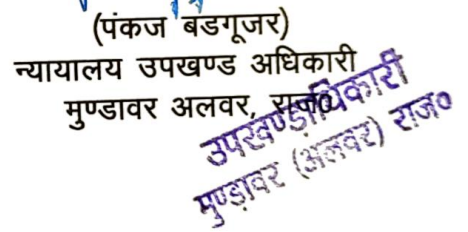 (पंकज बडगूजर)
न्यायालय उपखण्ड अधिकारी
मुण्डावर अलवर, राज०
उपखण्ड़ाधिकारी
मुण्ड़ावर (अलवर) राज०